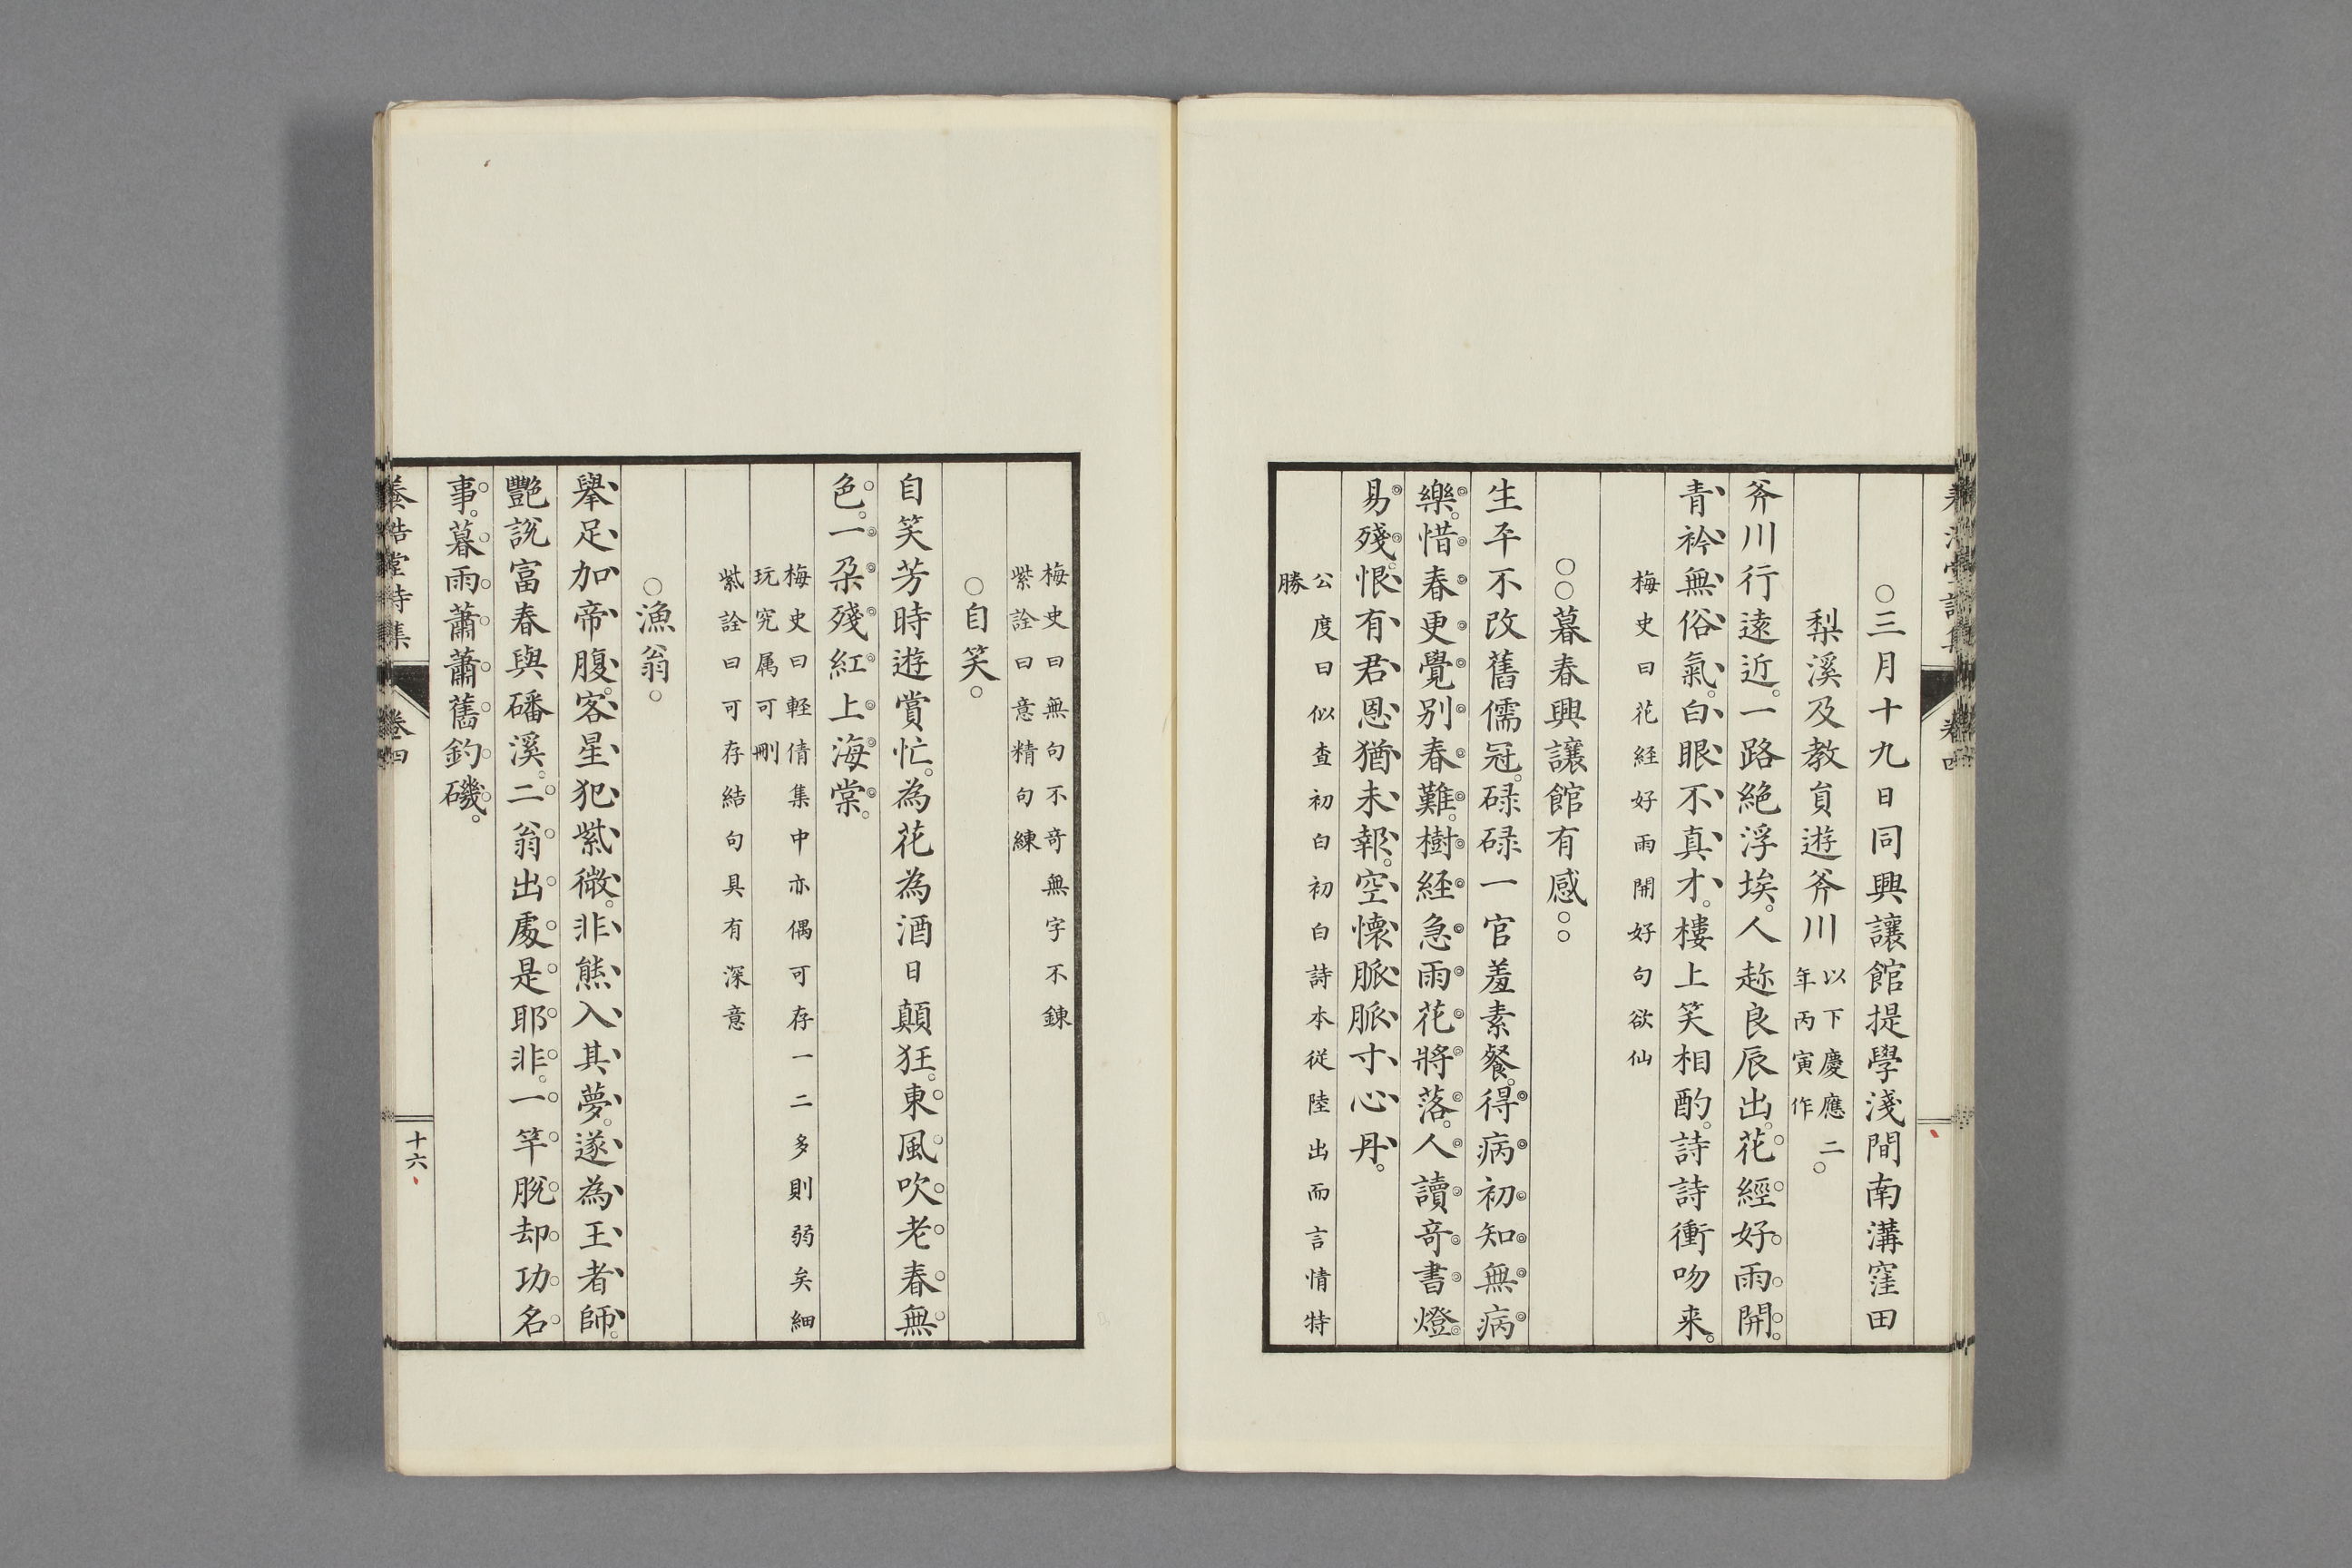 ○三月十九日同興讓館提學淺間南溝窪田
梨溪及教員遊斧川以下慶應二年丙寅作○
斧川行遠近。一路絶浮埃。人趂良辰出。花經好雨開。
青衿無俗氣。白眼不真才。樓上笑相酌。詩詩衝吻来。
梅史曰花経好雨開好句欲仙
○○暮春興讓館有感○○
生平不改舊儒冠。碌碌一官羞素餐。得病初知無病
樂。惜春更覺別春難。樹経急雨花將落。人讀奇書燈
易殘。恨有君恩猶未報。空懷脈脈寸心丹。
公度曰似査初白初白詩本從陸出而言情特
勝
梅史曰無句不奇無字不錬
紫詮曰意精句練
○自笑○
自笑芳時遊賞忙。為花為酒日顛狂。東風吹老春無
色。一朶殘紅上海棠。
梅史曰軽倩集中亦偶可存一二多則弱矣細
玩究属可刪
紫詮曰可存結句具有深意
○漁翁○
舉足加帝腹。客星犯紫微。非熊入其夢。遂為王者師。
艷說富春與磻溪。二翁出處是耶非。一竿脫却功名
事。暮雨蕭蕭舊釣磯。
養浩堂詩集
卷四
十六